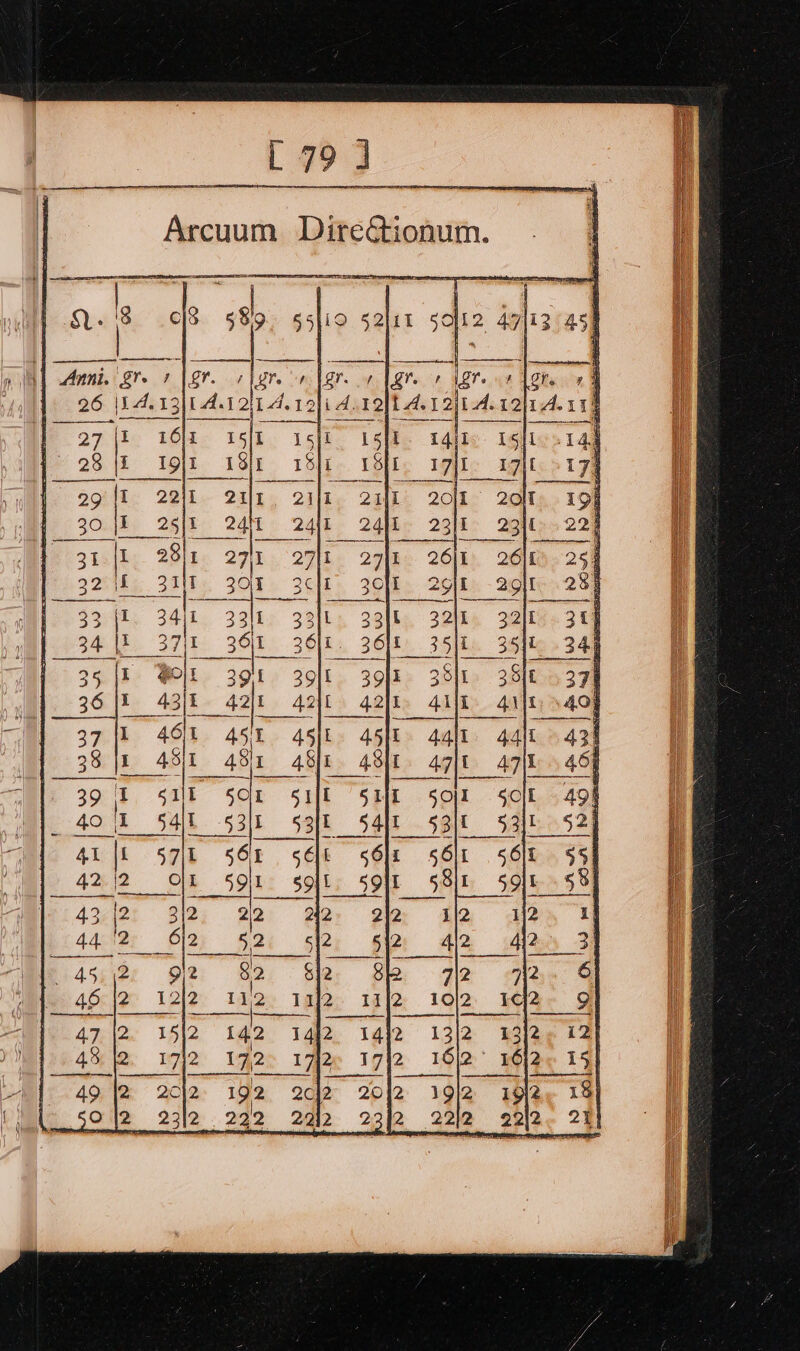 [ 79 ]
Arcuum Directionum.
♌. 8 0|8 58|9 55|10 52|11 50|12 47|13 45
Anni. gr. ′ |gr. ′ |gr. ′ |gr. ′ |gr. ′ |gr. ′ |gr. ′
26 |1 A. 13|1 A. 12|1 A. 12|1 A. 12|1 A. 12|1 A. 12|1 A. 11
27 |1 16|1 15|1 15|1 15|1 14|1 15|1 14
28 |1 19|1 18|1 18|1 18|1 17|1 17|1 17
29 |1 22|1 21|1 21|1 21|1 20|1 20|1 19
30 |1 25|1 24|1 24|1 24|1 23|1 23|1 22
31 |1 28|1 27|1 27|1 27|1 26|1 26|1 25
32 |1 31|1 30|1 30|1 30|1 29|1 29|1 28
33 |1 34|1 33|1 33|1 33|1 32|1 32|1 31
34 |1 37|1 36|1 36|1 36|1 35|1 35|1 34
35 |1 40|1 39|1 39|1 39|1 38|1 38|1 37
36 |1 43|1 42|1 42|1 42|1 41|1 41|1 40
37 |1 46|1 45|1 45|1 45|1 44|1 44|1 43
38 |1 48|1 48|1 48|1 48|1 47|1 47|1 46
39 |1 51|1 50|1 51|1 51|1 50|1 50|1 49
40 |1 54|1 53|1 53|1 54|1 53|1 53|1 52
41 |1 57|1 56|1 56|1 56|1 56|1 56|1 55
42 |2 0|1 59|1 59|1 59|1 58|1 59|1 58
43 |2 3|2 2|2 2|2 2|2 1|2 1|2 1
44 |2 6|2 5|2 5|2 5|2 4|2 4|2 3
45 |2 9|2 8|2 8|2 8|2 7|2 7|2 6
46 |2 12|2 11|2 11|2 11|2 10|2 10|2 9
47 |2 15|2 14|2 14|2 14|2 13|2 13|2 12
48 |2 17|2 17|2 17|2 17|2 16|2 16|2 15
49 |2 20|2 19|2 20|2 20|2 19|2 19|2 18
50 |2 23|2 22|2 22|2 23|2 22|2 22|2 21